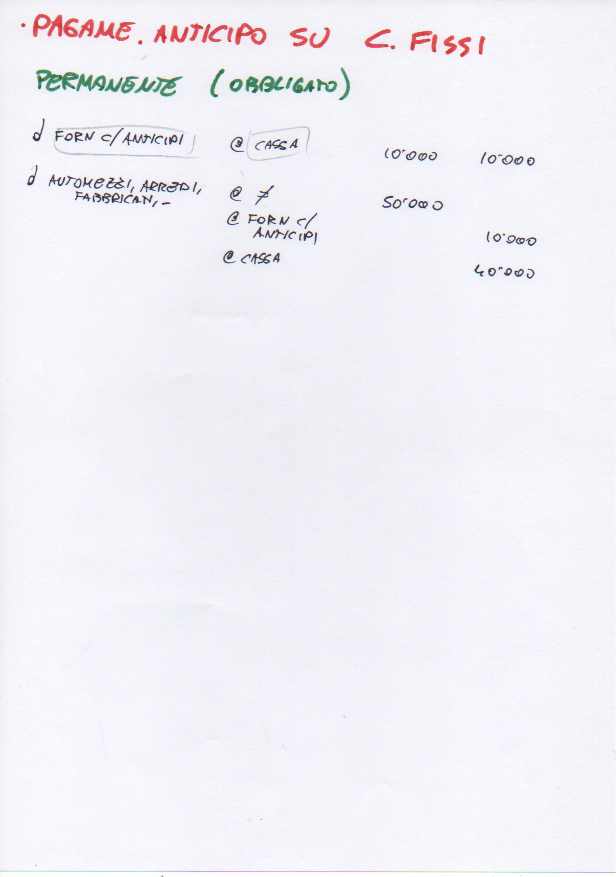 · PAGAME. ANTICIPO SU C. FISSI
PERMANENTE (OBBLIGATO)
d FORN C/ ANTICIPI @ CASSA 10'000 10'000
d AUTOMEZZI, ARREDI, @ ≠ 50'000
FABBRICATI, –
@ FORN C/
ANTICIPI 10'000
@ CASSA 40'000